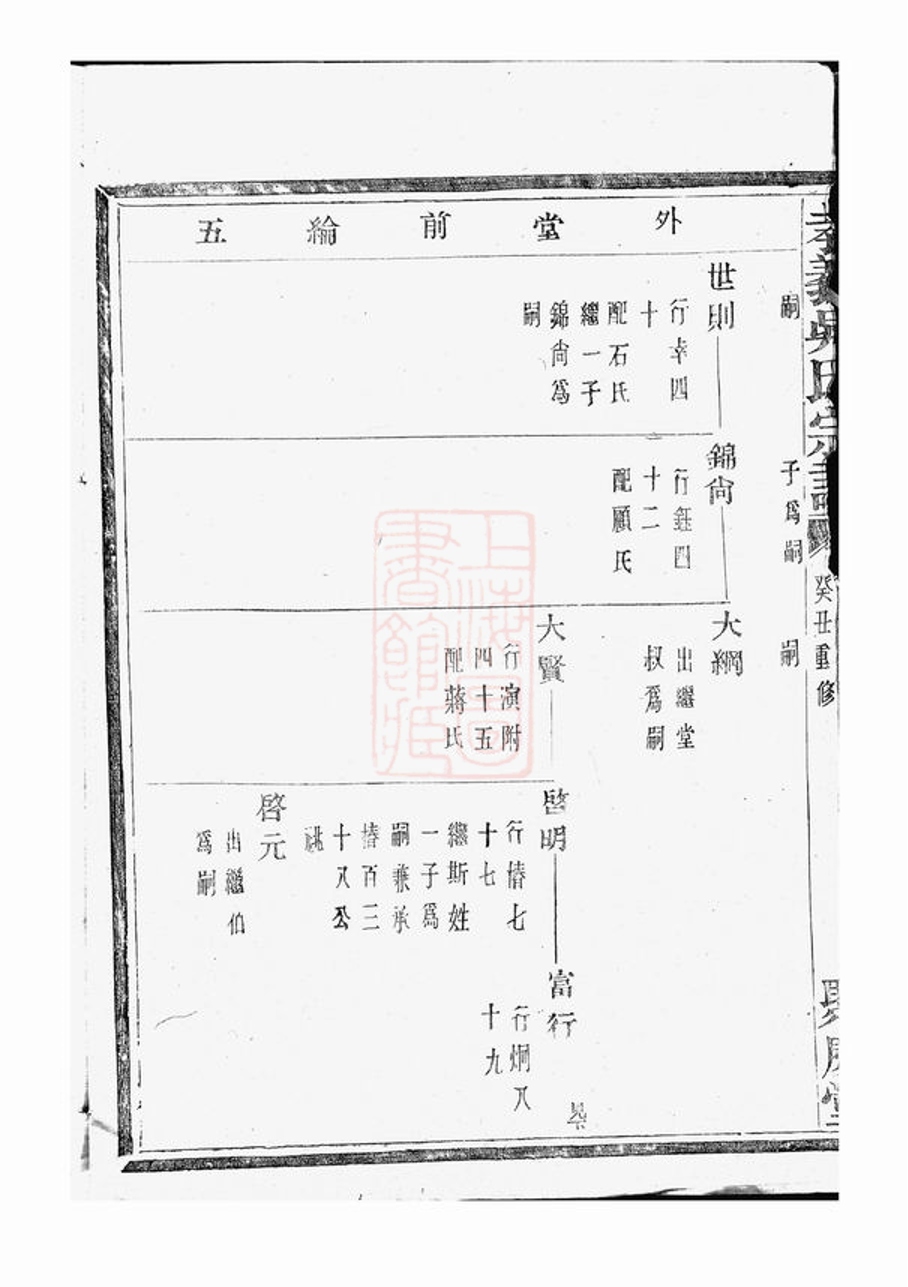 孝義吳氏宗譜
癸丑重修
外堂前綸五
嗣
子爲嗣
嗣
世則
行幸四
十
配石氏
繼一子
錦尙爲
嗣
錦尙
行鈺四
十二
配顧氏
大綱
出繼堂
叔爲嗣
大賢
行演附
四十五
配蔣氏
啓明
行椿七
十七
繼斯姓
一子爲
嗣兼承
椿百三
十八公
祧
啓元
出繼伯
爲嗣
富行
行炯八
十九
上海圖書館藏